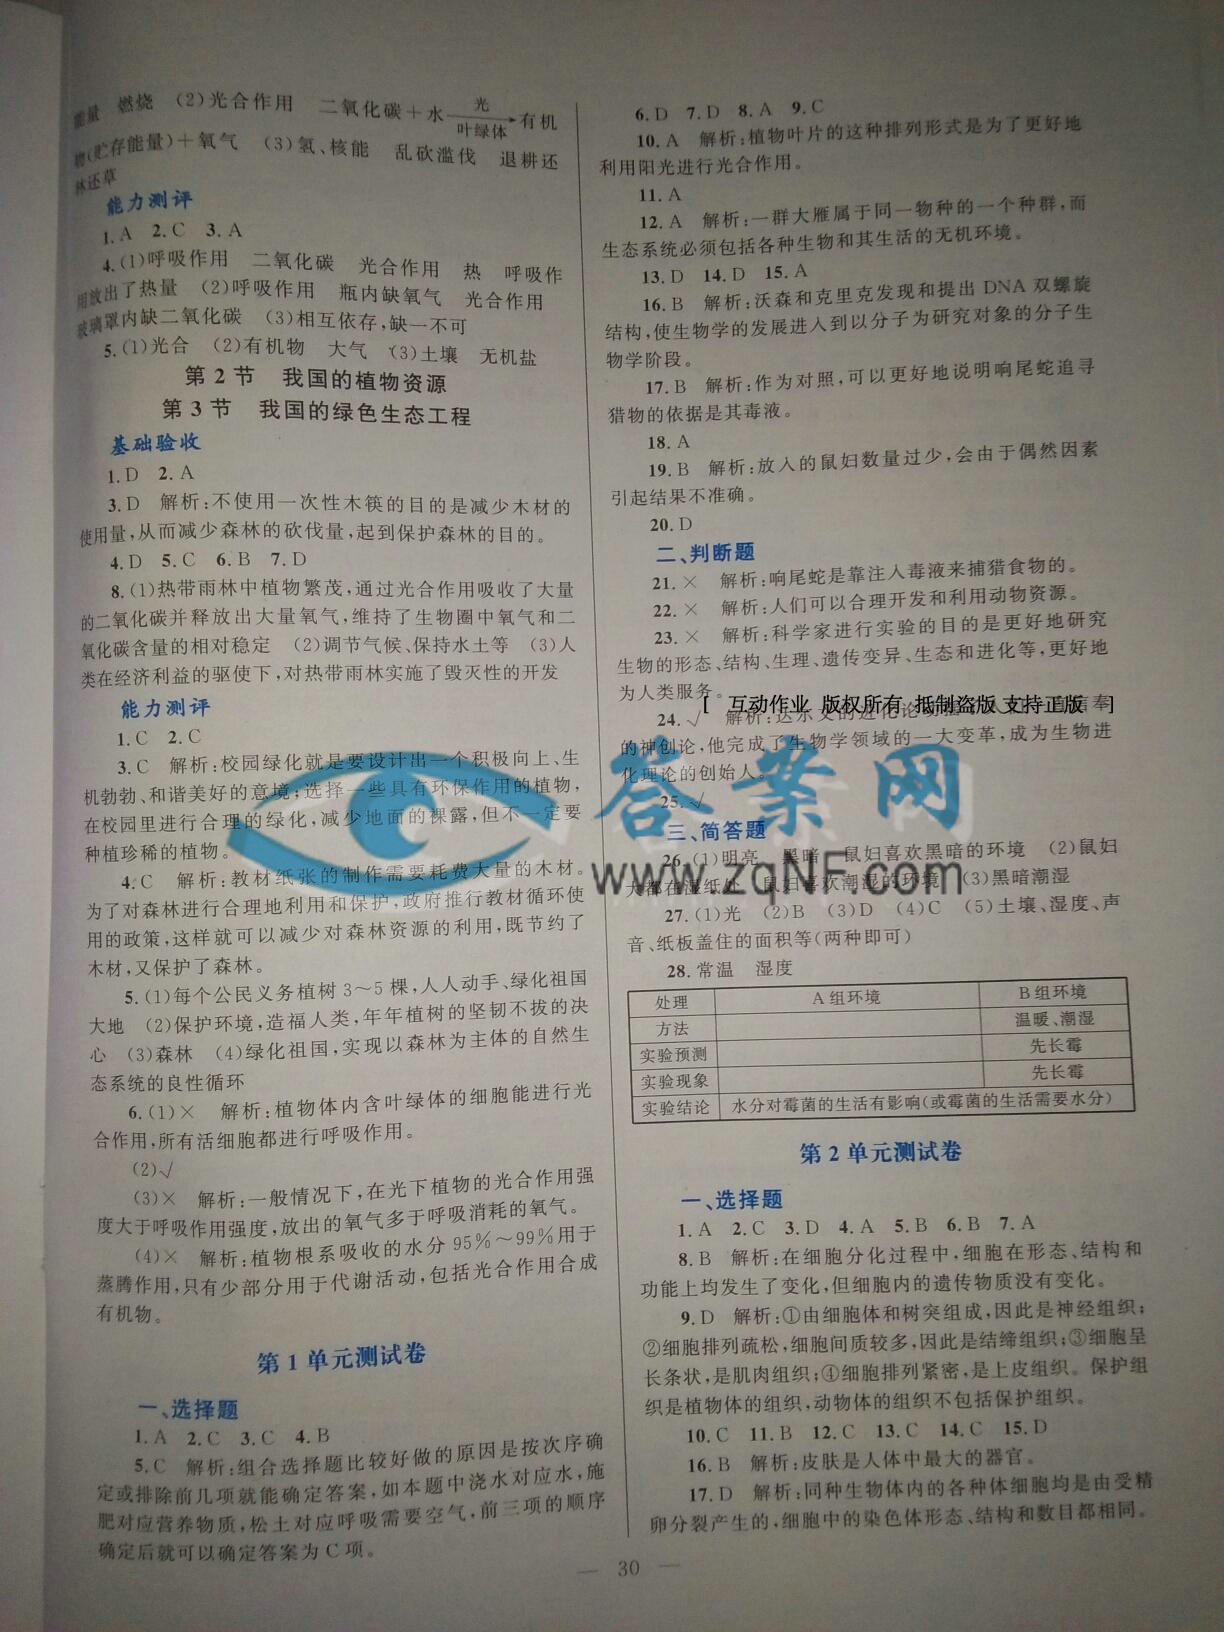 能量 燃烧 (2)光合作用 二氧化碳+水 光 叶绿体 →有机
物(贮存能量)+氧气 (3)氢、核能 乱砍滥伐 退耕还
林还草
能力测评
1.A 2.C 3.A
4.(1)呼吸作用 二氧化碳 光合作用 热 呼吸作
用放出了热量 (2)呼吸作用 瓶内缺氧气 光合作用
玻璃罩内缺二氧化碳 (3)相互依存,缺一不可
5.(1)光合 (2)有机物 大气 (3)土壤 无机盐
第2节 我国的植物资源
第3节 我国的绿色生态工程
基础验收
1.D 2.A
3.D 解析:不使用一次性木筷的目的是减少木材的
使用量,从而减少森林的砍伐量,起到保护森林的目的。
4.D 5.C 6.B 7.D
8.(1)热带雨林中植物繁茂,通过光合作用吸收了大量
的二氧化碳并释放出大量氧气,维持了生物圈中氧气和二
氧化碳含量的相对稳定 (2)调节气候、保持水土等 (3)人
类在经济利益的驱使下,对热带雨林实施了毁灭性的开发
能力测评
1.C 2.C
3.C 解析:校园绿化就是要设计出一个积极向上、生
机勃勃、和谐美好的意境;选择一些具有环保作用的植物,
在校园里进行合理的绿化,减少地面的裸露,但不一定要
种植珍稀的植物。
4.C 解析:教材纸张的制作需要耗费大量的木材。
为了对森林进行合理地利用和保护,政府推行教材循环使
用的政策,这样就可以减少对森林资源的利用,既节约了
木材,又保护了森林。
5.(1)每个公民义务植树3~5棵,人人动手、绿化祖国
大地 (2)保护环境,造福人类,年年植树的坚韧不拔的决
心 (3)森林 (4)绿化祖国,实现以森林为主体的自然生
态系统的良性循环
6.(1)× 解析:植物体内含叶绿体的细胞能进行光
合作用,所有活细胞都进行呼吸作用。
(2)√
(3)× 解析:一般情况下,在光下植物的光合作用强
度大于呼吸作用强度,放出的氧气多于呼吸消耗的氧气。
(4)× 解析:植物根系吸收的水分95%~99%用于
蒸腾作用,只有少部分用于代谢活动,包括光合作用合成
有机物。
第1单元测试卷
一、选择题
1.A 2.C 3.C 4.B
5.C 解析:组合选择题比较好做的原因是按次序确
定或排除前几项就能确定答案,如本题中浇水对应水,施
肥对应营养物质,松土对应呼吸需要空气,前三项的顺序
确定后就可以确定答案为C项。
6.D 7.D 8.A 9.C
10.A 解析:植物叶片的这种排列形式是为了更好地
利用阳光进行光合作用。
11.A
12.A 解析:一群大雁属于同一物种的一个种群,而
生态系统必须包括各种生物和其生活的无机环境。
13.D 14.D 15.A
16.B 解析:沃森和克里克发现和提出DNA双螺旋
结构,使生物学的发展进入到以分子为研究对象的分子生
物学阶段。
17.B 解析:作为对照,可以更好地说明响尾蛇追寻
猎物的依据是其毒液。
18.A
19.B 解析:放入的鼠妇数量过少,会由于偶然因素
引起结果不准确。
20.D
二、判断题
21.× 解析:响尾蛇是靠注入毒液来捕猎食物的。
22.× 解析:人们可以合理开发和利用动物资源。
23.× 解析:科学家进行实验的目的是更好地研究
生物的形态、结构、生理、遗传变异、生态和进化等,更好地
为人类服务。
[ 互动作业 版权所有 抵制盗版 支持正版 ]
24.√ 解析:达尔文的进化论动摇了人们一直信奉
的神创论,他完成了生物学领域的一大变革,成为生物进
化理论的创始人。
答案网
25.√
三、简答题
26.(1)明亮 黑暗 鼠妇喜欢黑暗的环境 (2)鼠妇
www.zqNF.com
大都在湿纸处 鼠妇喜欢潮湿的环境 (3)黑暗潮湿
27.(1)光 (2)B (3)D (4)C (5)土壤、湿度、声
音、纸板盖住的面积等(两种即可)
28.常温 湿度
处理 A组环境 B组环境
方法 温暖、潮湿
实验预测 先长霉
实验现象 先长霉
实验结论 水分对霉菌的生活有影响(或霉菌的生活需要水分)
第2单元测试卷
一、选择题
1.A 2.C 3.D 4.A 5.B 6.B 7.A
8.B 解析:在细胞分化过程中,细胞在形态、结构和
功能上均发生了变化,但细胞内的遗传物质没有变化。
9.D 解析:①由细胞体和树突组成,因此是神经组织;
②细胞排列疏松,细胞间质较多,因此是结缔组织;③细胞呈
长条状,是肌肉组织;④细胞排列紧密,是上皮组织。保护组
织是植物体的组织,动物体的组织不包括保护组织。
10.C 11.B 12.C 13.C 14.C 15.D
16.B 解析:皮肤是人体中最大的器官。
17.D 解析:同种生物体内的各种体细胞均是由受精
卵分裂产生的,细胞中的染色体形态、结构和数目都相同。
— 30 —